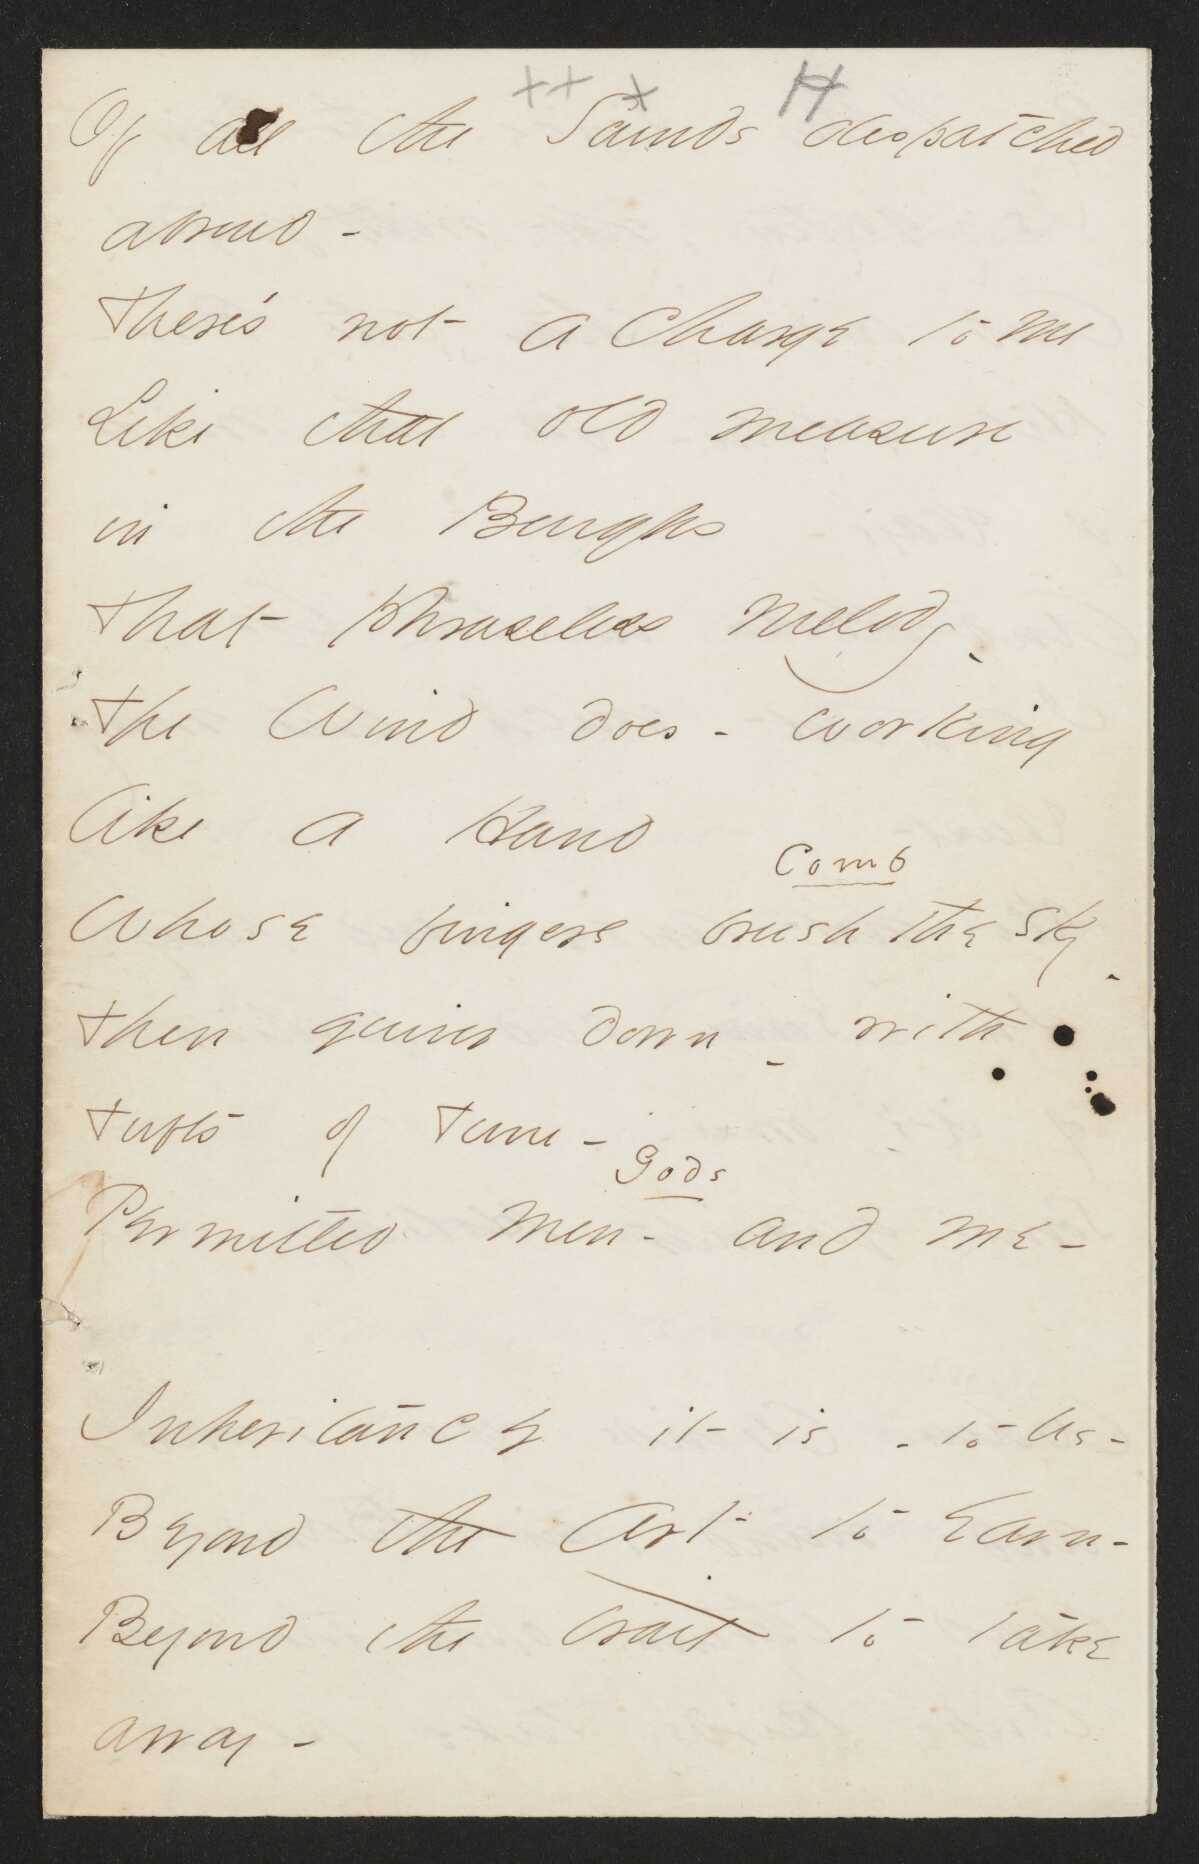 ++ + H
Of all the Sounds despatched
abroad -
There's not a Charge to me
Like that old measure
in the Boughs
That Phraseless Melody -
The Wind does - working
like a Hand
Comb
Whose fingers brush the Sky -
Then quiver down - with
tufts of Tune -
Gods
Permitted Men - and me -
Inheritance it is - to Us -
Beyond the Art to Earn -
Beyond the trait to take
away -